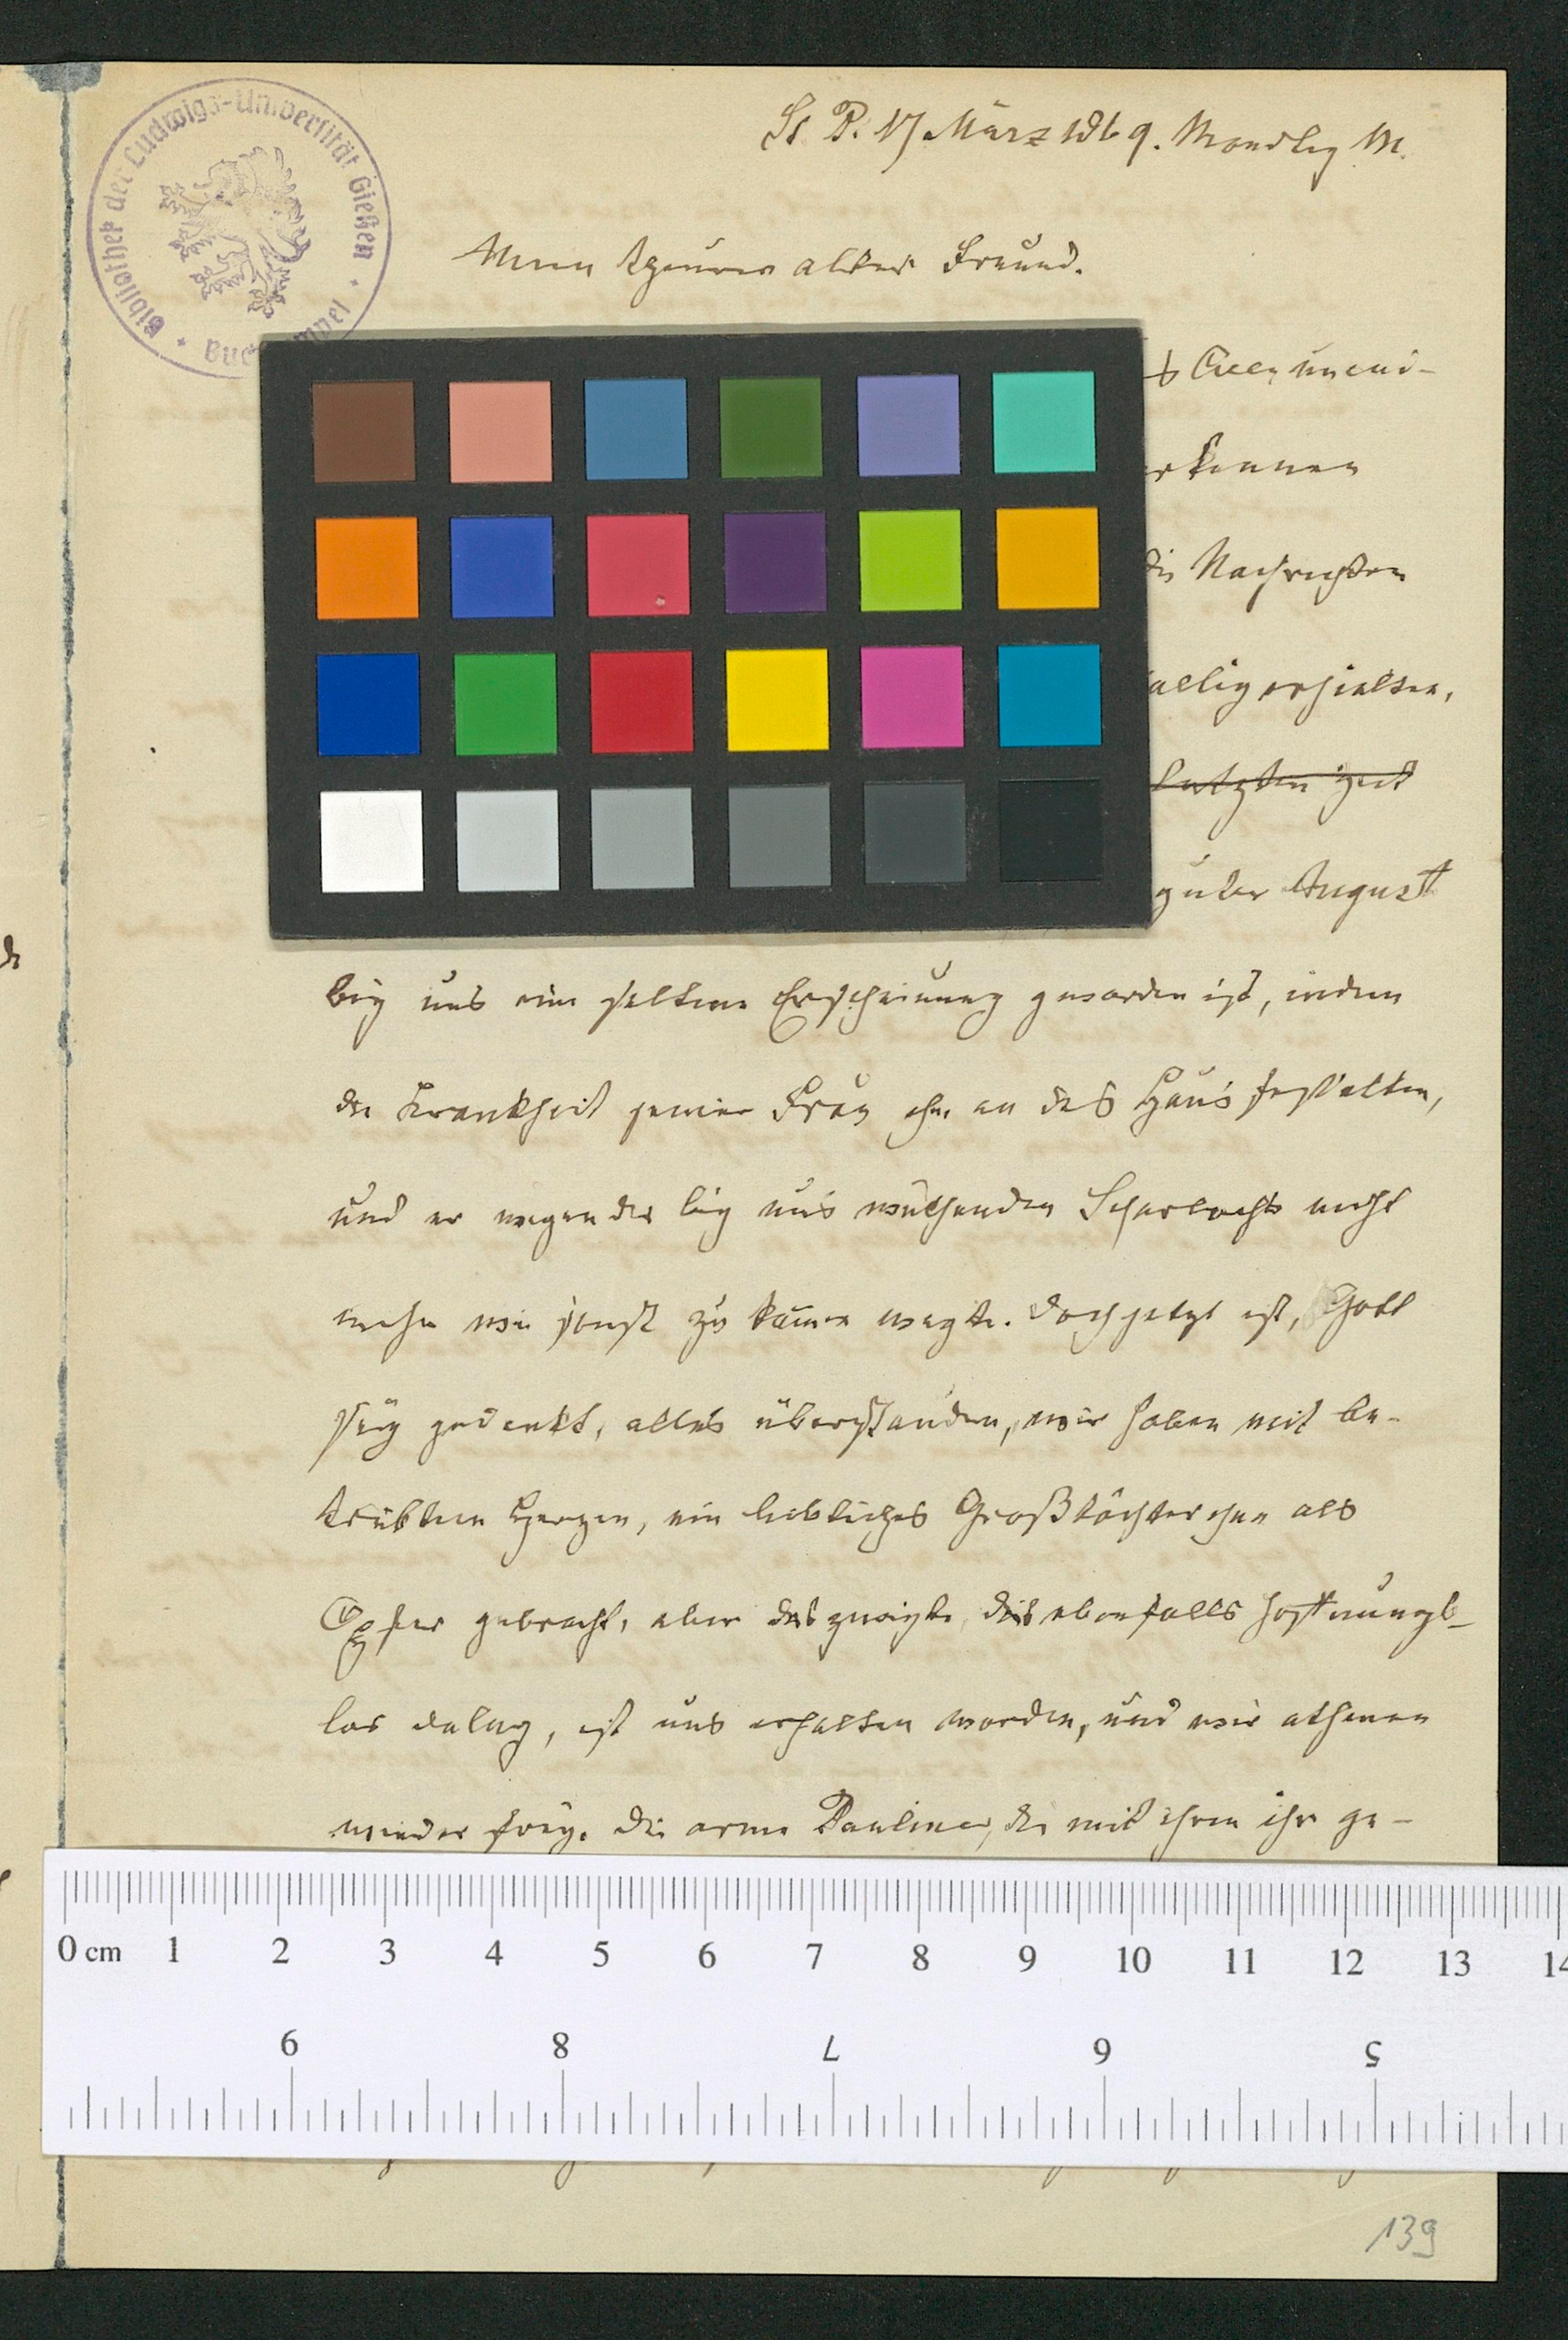 Bibliothek der Ludwigs-Universität Gießen
St P. 17 März 1869. Mondtag M.
Mein theurer alter Freund.
erkennen
die Nachrichten
erhielten,
letzten Zeit
guter August
bey uns eine seltene Erscheinung geworden ist, indem
die Krankheit seiner Frau ihn an das Haus festhalten,
und er wegen des bey uns wüthenden Scharlachs nicht
mehr wie sonst zu kommen wagte. Doch jetzt ist, Gott
sey gedankt, alles überstanden, wir haben mit be-
trübtem Herzen, ein liebliches Großtöchterchen als
Opfer gebracht, aber das zweyte, das ebenfalls hoffnungs-
los dalag, ist uns erhalten worden, und wir athmen
wieder frey. Die arme Pauline, die mit ihren ihr ge-
0 cm 1 2 3 4 5 6 7 8 9 10 11 12 13 14
9 8 7 6 5
139